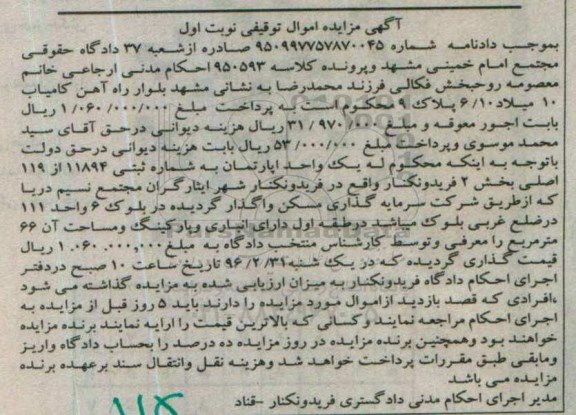 آگهی مزایده اموال توقیفی نوبت اول
بموجب دادنامه شماره ۹۵۰۹۹۷۷۵۷۸۷۰۰۴۵ صادره ازشعبه ۳۷ دادگاه حقوقی
مجتمع امام خمینی مشهد وپرونده کلاسه ۹۵۰۵۹۳ احکام مدنی ارجاعی خانم
معصومه روحبخش فکالی فرزند محمدرضا به نشانی مشهد بلوار راه آهن کامیاب
۱۰ میلاد ۶/۱۰ پلاک ۹ محکوم است به پرداخت مبلغ ۱/۰۶۰/۰۰۰/۰۰۰ ریال
بابت اجور معوقه و مبلغ ۳۱/۹۷۰/۰۰۰ ریال هزینه دیوانی درحق آقای سید
محمد موسوی وپرداخت مبلغ ۵۳/۰۰۰/۰۰۰ ریال بابت هزینه دیوانی درحق دولت
باتوجه به اینکه محکوم له یک واحد اپارتمان به شماره ثبتی ۱۱۸۹۴ از ۱۱۹
اصلی بخش ۲ فریدونکنار واقع در فریدونکنار شهر ایثارگران مجتمع نسیم دریا
که ازطریق شرکت سرمایه گذاری مسکن واگذار گردیده در بلوک ۶ واحد ۱۱۱
درضلع غربی بلوک میباشد درطبقه اول دارای انباری وپارکینگ ومساحت آن ۶۶
مترمربع را معرفی وتوسط کارشناس منتخب دادگاه به مبلغ ۱.۰۶۰.۰۰۰,۰۰۰ ریال
قیمت گذاری گردیده که در یک شنبه ۹۶/۲/۳۱ تاریخ ساعت ۱۰ صبح دردفتر
اجرای احکام دادگاه فریدونکنار به میزان ارزیابی شده به مزایده گذاشته می شود
،افرادی که قصد بازدید ازاموال مورد مزایده را دارند باید ۵ روز قبل از مزایده به
اجرای احکام مراجعه نمایند وکسانی که بالاترین قیمت را ارایه نمایند برنده مزایده
خواهند بود وهمچنین برنده مزایده در روز مزایده ده درصد را بحساب دادگاه واریز
ومابقی طبق مقررات پرداخت خواهد شد وهزینه نقل وانتقال سند برعهده برنده
مزایده می باشد
مدیر اجرای احکام مدنی دادگستری فریدونکنار -قناد